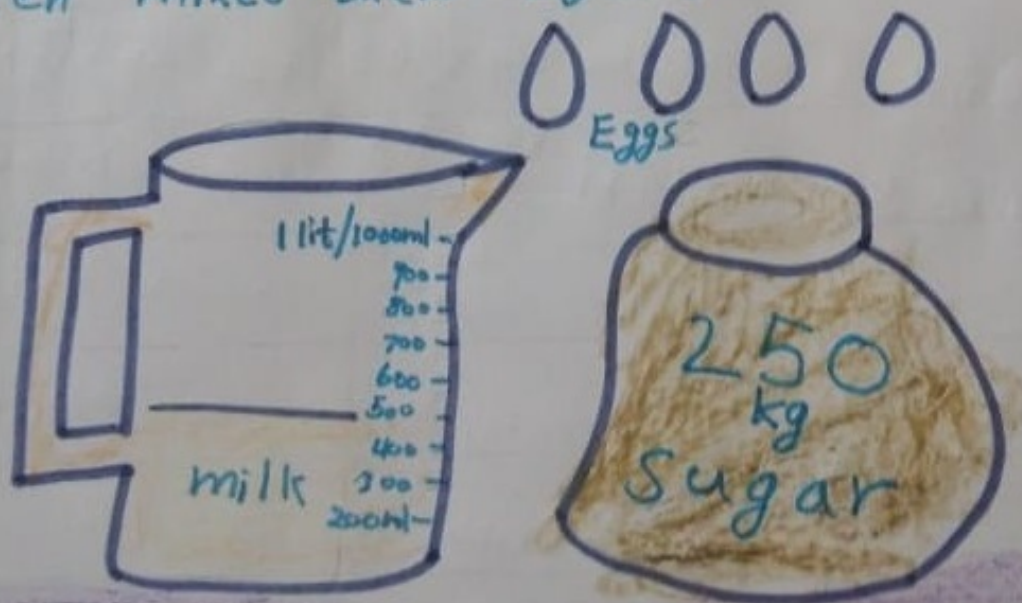 Eggs
1 lit/1000ml
900
800
700
600
500
400
300
200ml
milk
250
kg
Sugar